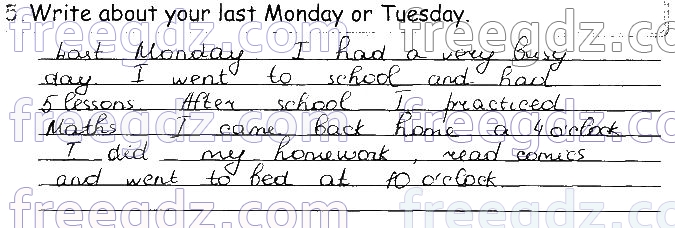 5. Write about your last Monday or Tuesday.
Last Monday I had a very busy
day. I went to school and had
5 lessons. After school I practiced
Maths. I came back home a 4 o'clock.
I did my homework, read comics
and went to bed at 10 o'clock.
freegdz.com freegdz.com
freegdz.com freegdz.com
freegdz.com freegdz.com